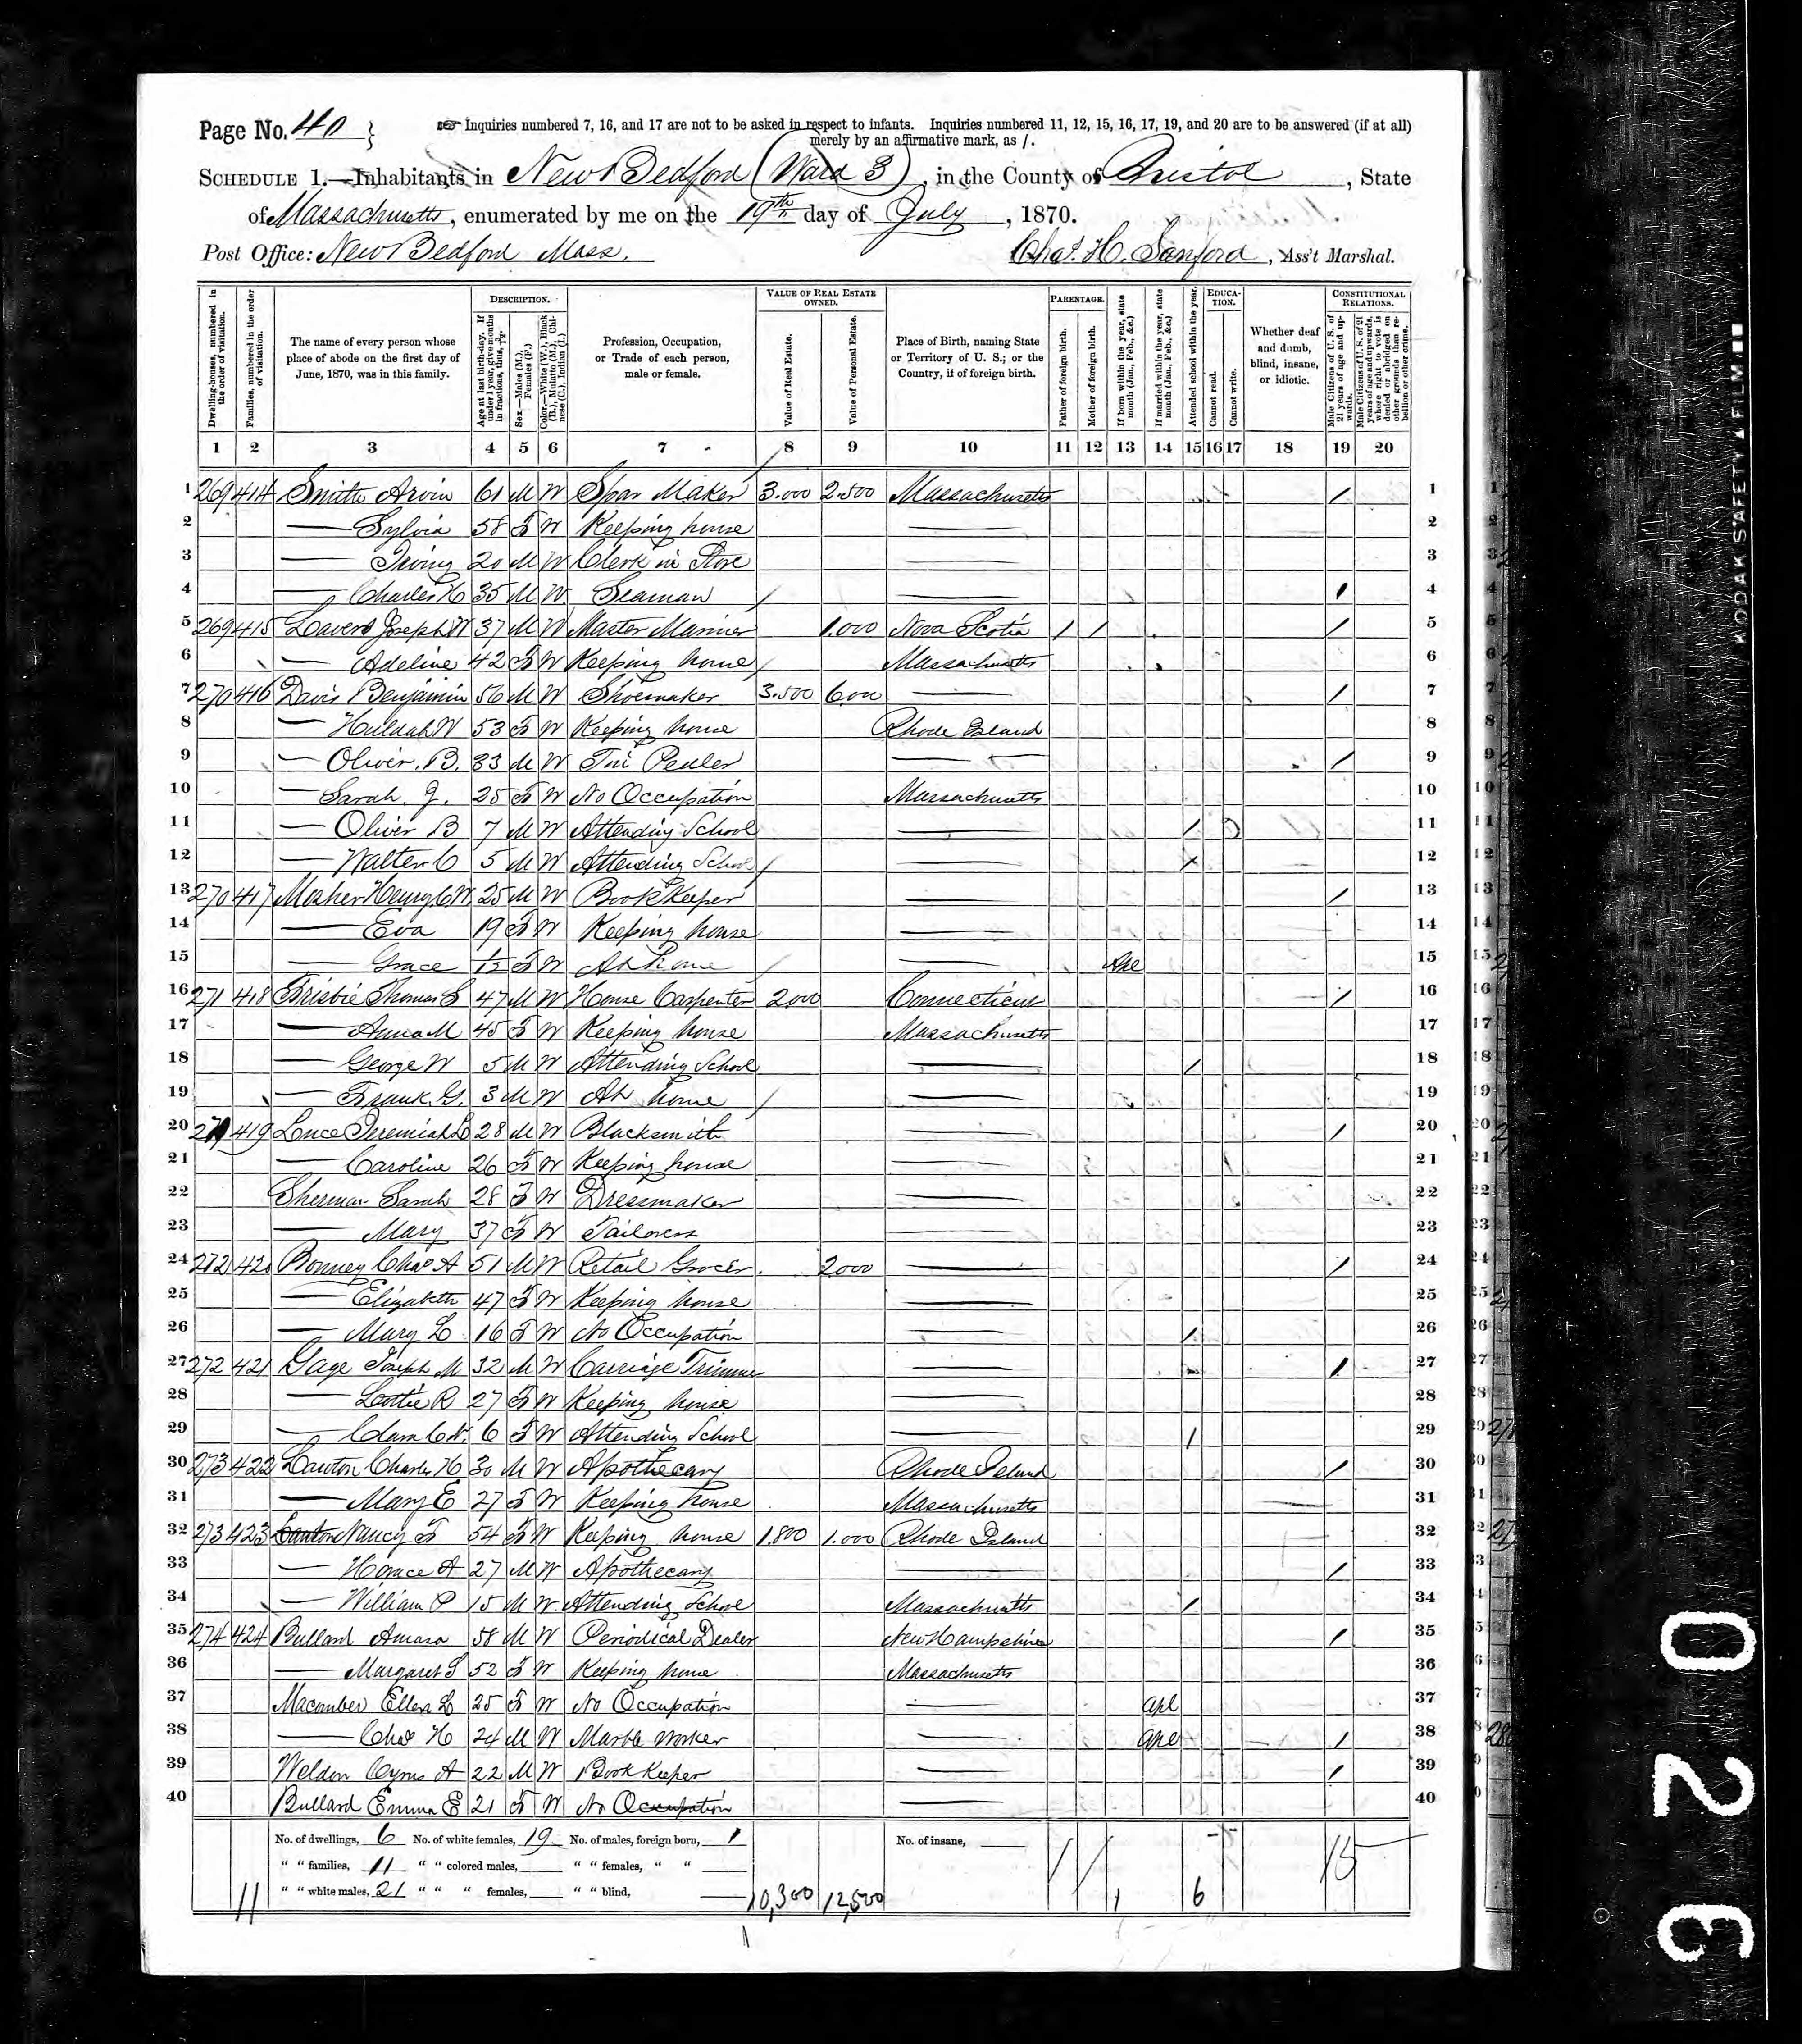 Page No. 40 }
☞ Inquiries numbered 7, 16, and 17 are not to be asked in respect to infants. Inquiries numbered 11, 12, 15, 16, 17, 19, and 20 are to be answered (if at all)
merely by an affirmative mark, as /.
SCHEDULE 1.—Inhabitants in New Bedford (Ward 3), in the County of Bristol, State
of Massachusetts, enumerated by me on the 19th day of July, 1870.
Post Office: New Bedford Mass. Chas. H. Sanford, Ass't Marshal.
Dwelling-houses, numbered in the order of visitation.
Families, numbered in the order of visitation.
The name of every person whose place of abode on the first day of June, 1870, was in this family.
DESCRIPTION.
Age at last birth-day. If under 1 year, give months in fractions, thus, 3/12
Sex.—Males (M.), Females (F.)
Color.—White (W.), Black (B.), Mulatto (M.), Chinese (C.), Indian (I.)
Profession, Occupation, or Trade of each person, male or female.
VALUE OF REAL ESTATE OWNED.
Value of Real Estate.
Value of Personal Estate.
Place of Birth, naming State or Territory of U. S.; or the Country, if of foreign birth.
PARENTAGE.
Father of foreign birth.
Mother of foreign birth.
If born within the year, state month (Jan., Feb., &c.)
If married within the year, state month (Jan., Feb., &c.)
Attended school within the year.
EDUCATION.
Cannot read.
Cannot write.
Whether deaf and dumb, blind, insane, or idiotic.
CONSTITUTIONAL RELATIONS.
Male Citizens of U. S. of 21 years of age and upwards.
Male Citizens of U. S. of 21 years of age and upwards, whose right to vote is denied or abridged on other grounds than rebellion or other crime.
1 2 3 4 5 6 7 8 9 10 11 12 13 14 15 16 17 18 19 20
1 269 414 Smith Arvin 61 M W Spar Maker 3.000 2.500 Massachusetts / 1
2 — Sylvia 58 F W Keeping house — 2
3 — Irving 20 M W Clerk in Store — 3
4 — Charles H 35 M W Seaman — / 4
5 269 415 Joseph W 37 M W Master Mariner 1.000 Nova Scotia / / / 5
6 — Adeline 42 F W Keeping house Massachusetts 6
7 270 416 Davis Benjamin 56 M W Shoemaker 3.500 6000 — / 7
8 — Huldah W 53 F W Keeping house Rhode Island 8
9 — Oliver. B. 33 M W Tin Pedler — / 9
10 — Sarah. J. 25 F W No Occupation Massachusetts 10
11 — Oliver B 7 M W Attending School — / 11
12 — Walter C 5 M W Attending School — / 12
13 270 417 Mosher Henry C W. 25 M W Book Keeper — / 13
14 — Eva 19 F W Keeping house — 14
15 — Grace 1/12 F W At home — 15
16 271 418 Frisbie Thomas S 47 M W House Carpenter 2000 Connecticut / 16
17 — Anna M 45 F W Keeping house Massachusetts 17
18 — George W 5 M W Attending School — / 18
19 — Frank. G. 3 M W At home — 19
20 271 419 Luce Jeremiah L 28 M W Blacksmith — / 20
21 — Caroline 26 F W Keeping house — 21
22 Sherman Sarah 28 F W Dressmaker — 22
23 — Mary 37 F W Tailoress — 23
24 272 420 Bonney Chas A 51 M W Retail Grocer. 2000 — / 24
25 — Elizabeth 47 F W Keeping house — 25
26 — Mary L 16 F W No Occupation — / 26
27 272 421 Gage Joseph M 32 M W Carriage Trimmer — / 27
28 — Lottie R 27 F W Keeping house — 28
29 — Clara C W. 6 F W Attending School — / 29
30 273 422 Lawton Charles H 30 M W Apothecary Rhode Island / 30
31 — Mary E 27 F W Keeping house Massachusetts 31
32 273 423 Lawton Nancy T 54 F W Keeping house 1.800 1.000 Rhode Island 32
33 — Horace A 27 M W Apothecary — / 33
34 — William P 15 M W Attending School Massachusetts / 34
35 274 424 Bullard Amasa 58 M W Periodical Dealer New Hampshire / 35
36 — Margaret S 52 F W Keeping house Massachusetts 36
37 Macomber Ellen L 25 F W No Occupation — Apl 37
38 — Chas H 24 M W Marble Worker — Apl / 38
39 Weldon Cyrus A 22 M W Book Keeper — / 39
40 Bullard Emma E 21 F W No Occupation — 40
No. of dwellings, 6 No. of white females, 19 No. of males, foreign born, 1 No. of insane,
" " families, 11 " " colored males, " " females, " "
" " white males, 21 " " " females, " " blind,
11 10,300 12,500 1 1 1 6 15
KODAK SAFETY FILM
0 2 3